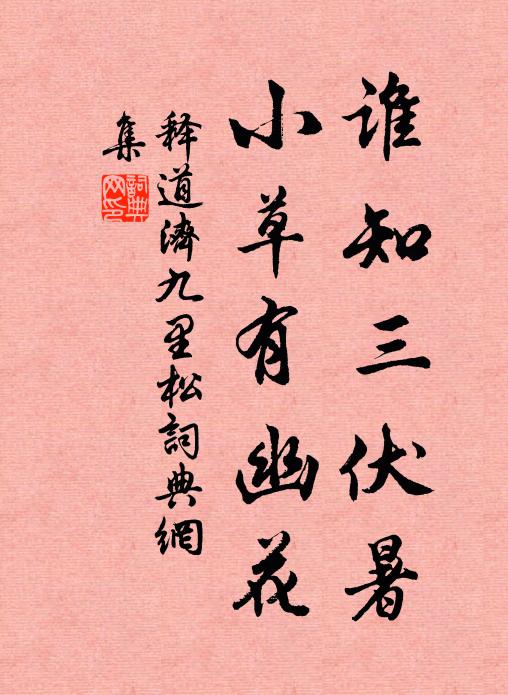 谁知三伏暑
小草有幽花
释道濟九里松詞典網
集
詞典网印